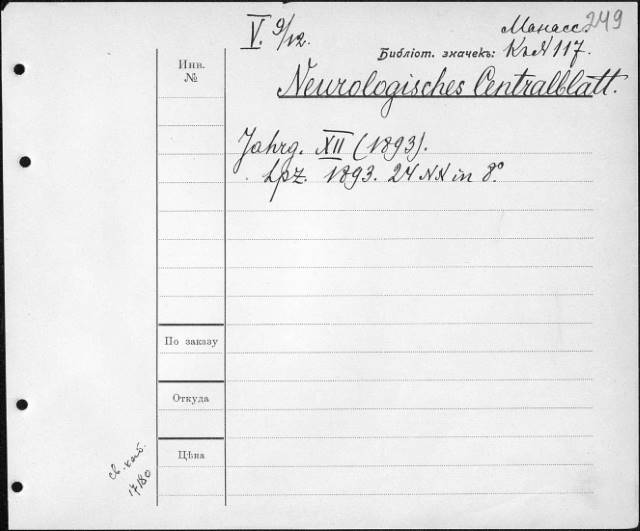 V. 9/12.
Манасс. 249
Библіот. значекъ: К. A 117.
Инв.
№
Neurologisches Centralblatt.
Jahrg. XII (1893).
Lpz. 1893. 24 NN in 8°.
По заказу
Откуда
Цѣна
св. каб.
17180